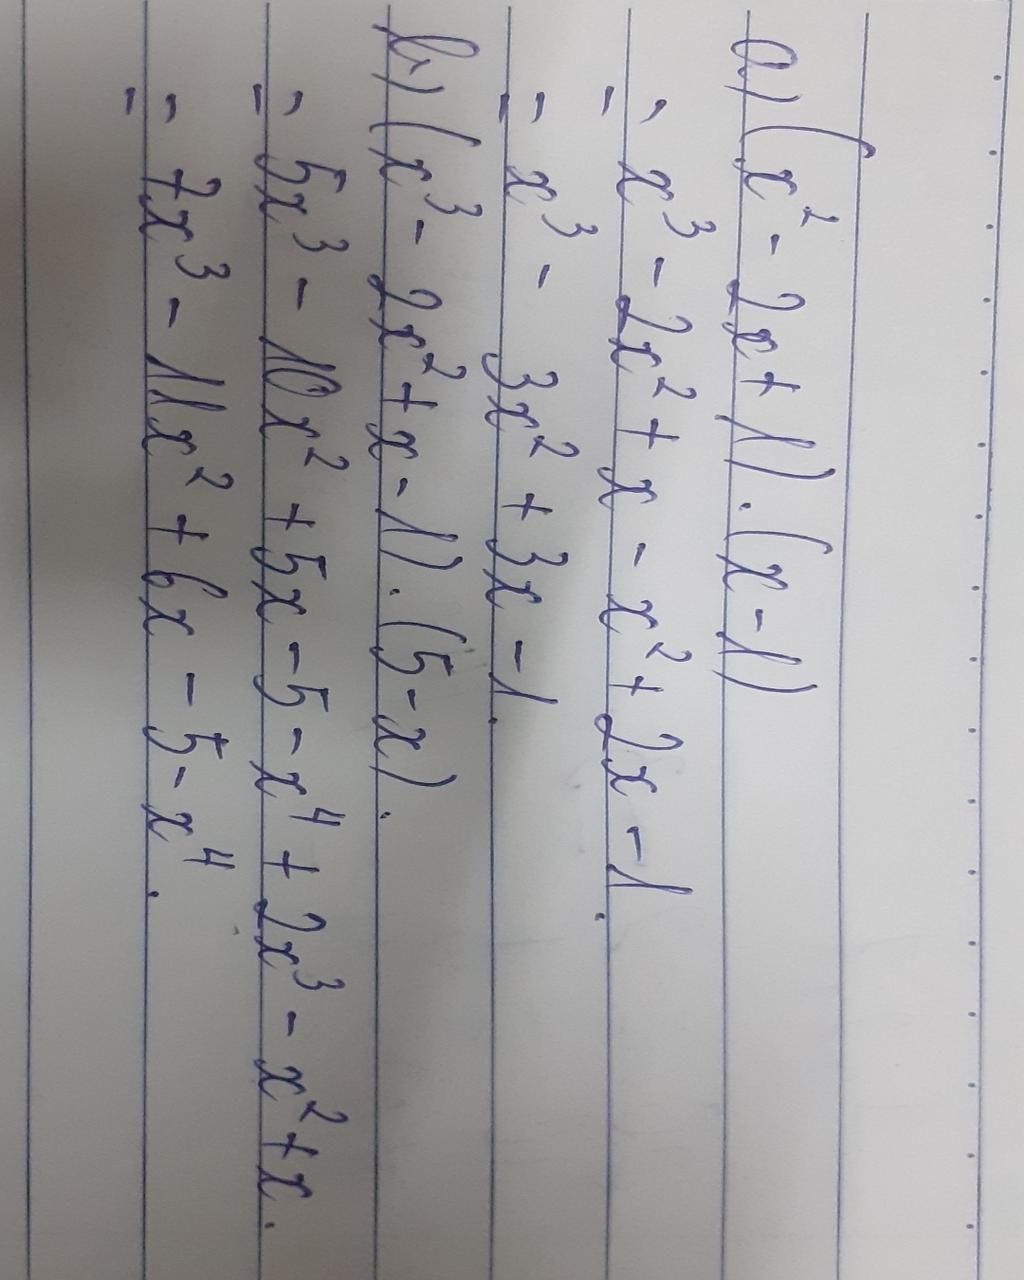 a) (x² - 2x + 1) . (x - 1)
= x³ - 2x² + x - x² + 2x - 1.
= x³ - 3x² + 3x - 1.
b) (x³ - 2x² + x - 1) . (5 - x).
= 5x³ - 10x² + 5x - 5 - x⁴ + 2x³ - x² + x.
= 7x³ - 11x² + 6x - 5 - x⁴.